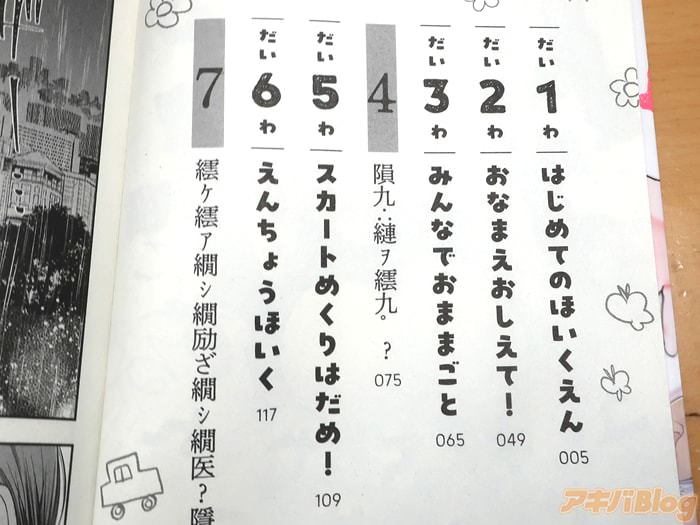 だい1わ はじめてのほいくえん 005
だい2わ おなまえおしえて! 049
だい3わ みんなでおままごと 065
4 隕九∴縺ヲ繧九。? 075
だい5わ スカートめくりはだめ! 109
だい6わ えんちょうほいく 117
7 繧ケ繧ア繝シ繝励ざ繝シ繝医?隱
アキバBlog